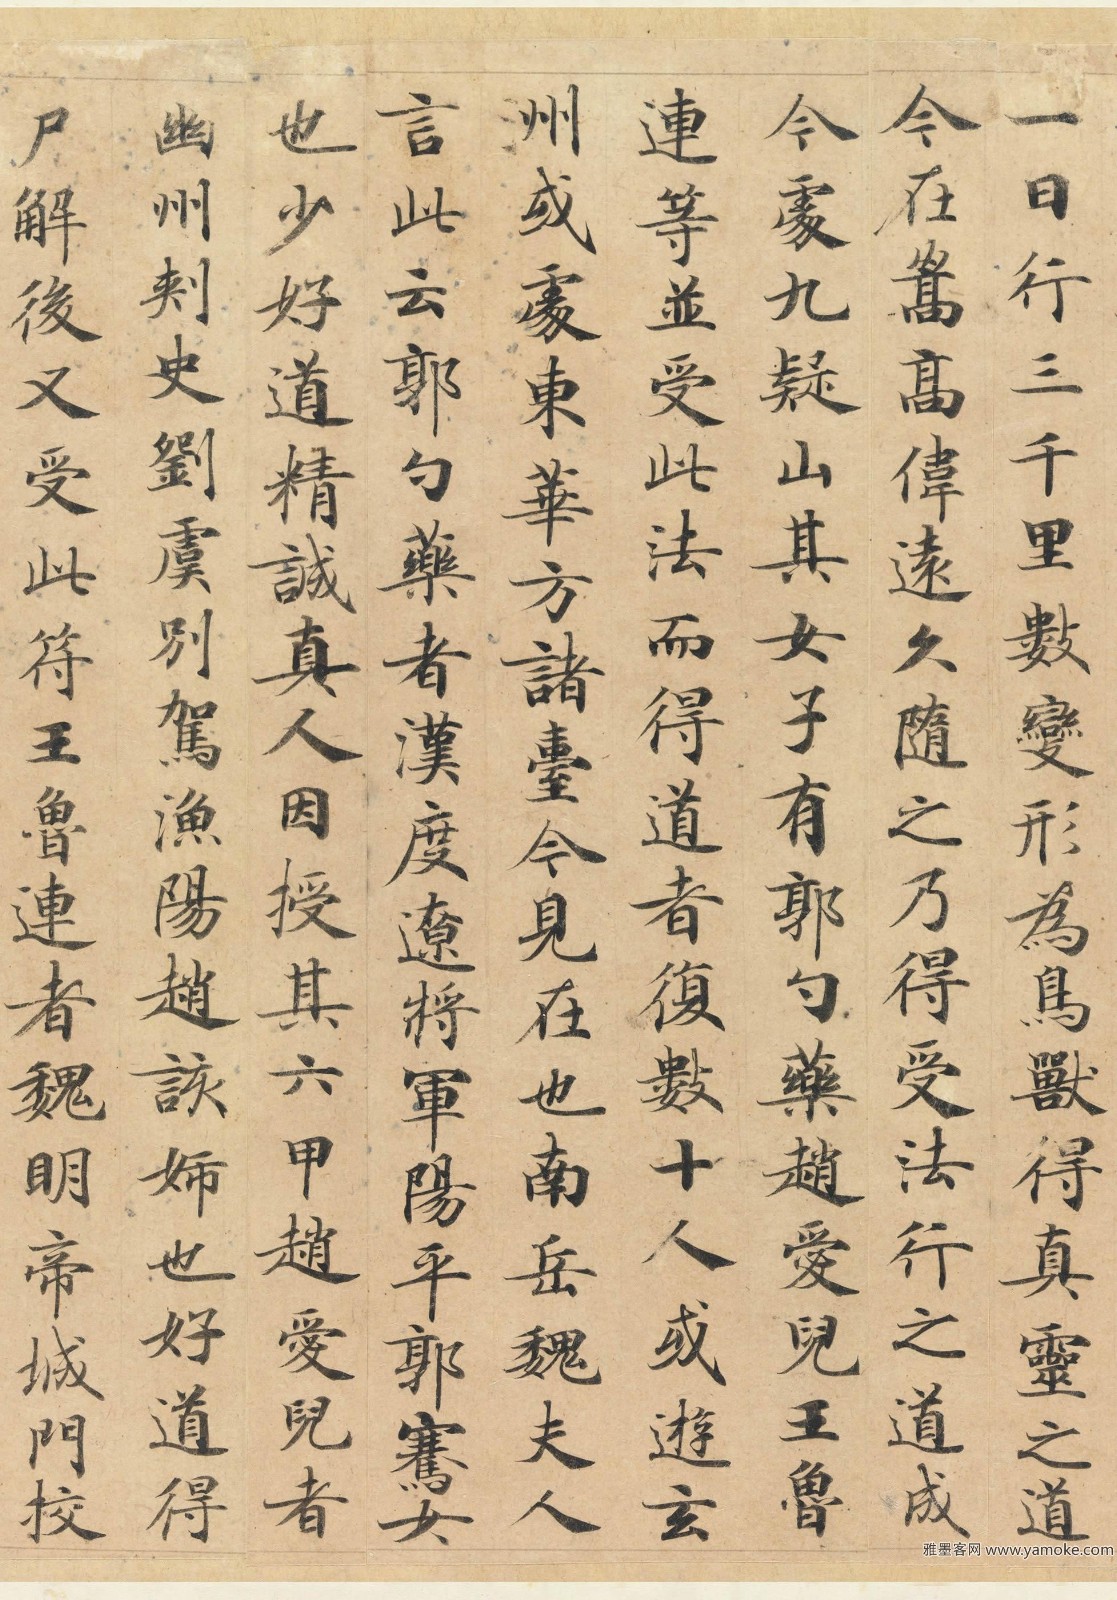 一日行三千里數變形為鳥獸得真靈之道
今在嵩高偉遠久隨之乃得受法行之道成
今處九疑山其女子有郭勺藥趙愛兒王魯
連等並受此法而得道者復數十人或遊玄
洲或處東華方諸臺今見在也南岳魏夫人
言此云郭勺藥者漢度遼將軍陽平郭騫女
也少好道精誠真人因授其六甲趙愛兒者
幽州刺史劉虞別駕漁陽趙該姊也好道得
尸解後又受此符王魯連者魏明帝城門校
雅墨客网 www.yamoke.com